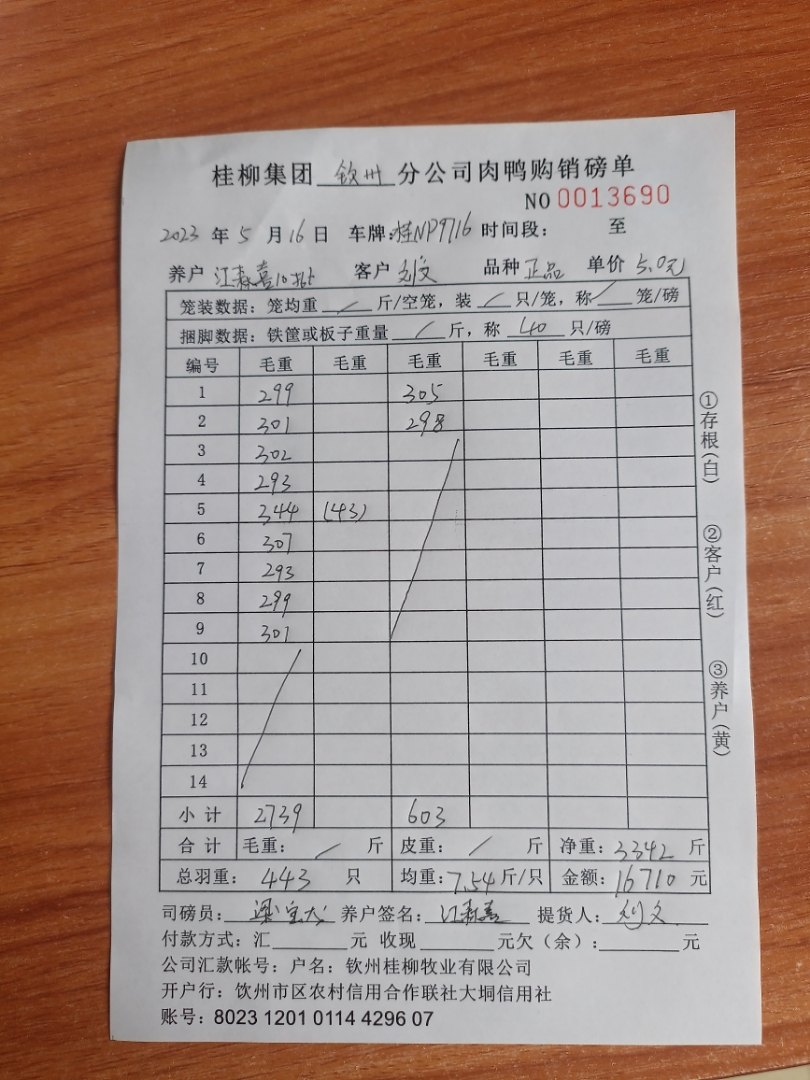 桂柳集团 钦州 分公司肉鸭购销磅单
NO 0013690
2023 年 5 月 16 日 车牌:桂NP9716 时间段: 至
养户 江森喜10批 客户 刘文 品种 正品 单价 5.0元
笼装数据: 笼均重 / 斤/空笼, 装 / 只/笼, 称 / 笼/磅
捆脚数据: 铁筐或板子重量 / 斤, 称 40 只/磅
编号 毛重 毛重 毛重 毛重 毛重 毛重
1 299 305
2 301 298
3 302
4 293
5 344 (43)
6 307
7 293
8 299
9 301
10
11
12
13
14
小计 2739 603
合计 毛重: / 斤 皮重: / 斤 净重: 3342 斤
总羽重: 443 只 均重: 7.54 斤/只 金额: 16710 元
司磅员: 养户签名: 江森喜 提货人: 刘文
付款方式: 汇 元 收现 元欠(余): 元
公司汇款帐号: 户名: 钦州桂柳牧业有限公司
开户行: 钦州市区农村信用合作联社大垌信用社
账号: 8023 1201 0114 4296 07
①存根(白)
②客户(红)
③养户(黄)